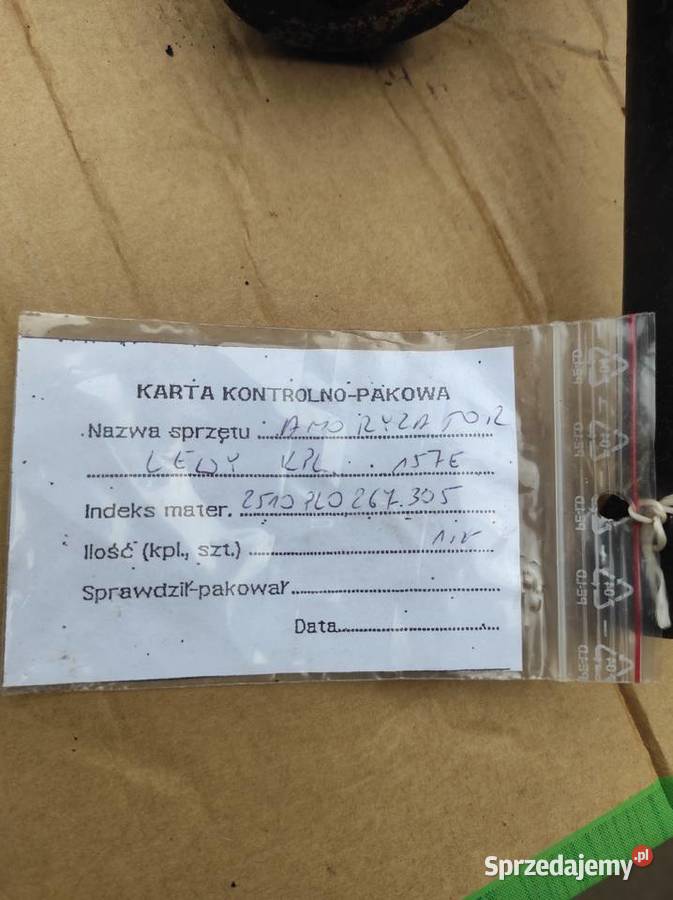 KARTA KONTROLNO-PAKOWA
Nazwa sprzętu AMORYZATOR
LEWY KPL. 157E
Indeks mater. 2510PL0267305
Ilość (kpl., szt.)
Sprawdził-pakował
Data
PE-LD
PE-LD
PE-LD
PE-LD
PE-LD
04
04
04
04
Sprzedajemy.pl